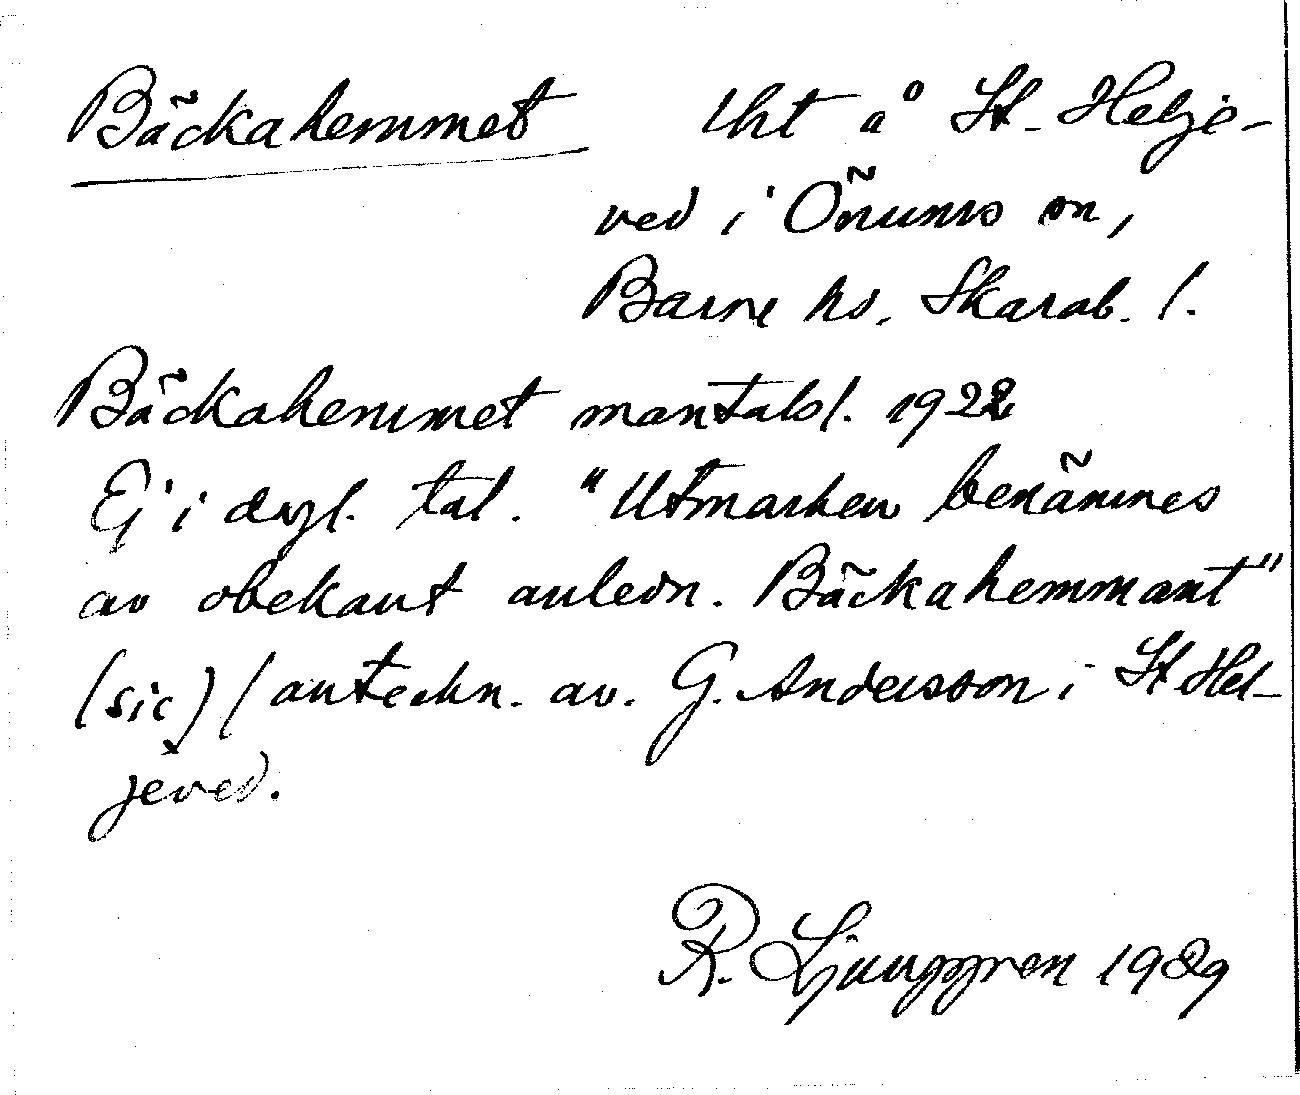 Bäckahemmet lht å St. Helje-
ved i Önums sn,
Barne hd, Skarab. l.
Bäckahemmet mantalsl. 1922
Ej i dagl. tal. "Utmarken benämnes
av obekant anledn. Bäckahemmant"
(sic) (anteckn. av. G. Andersson i St Hel-
jeved.
R. Ljunggren 1929